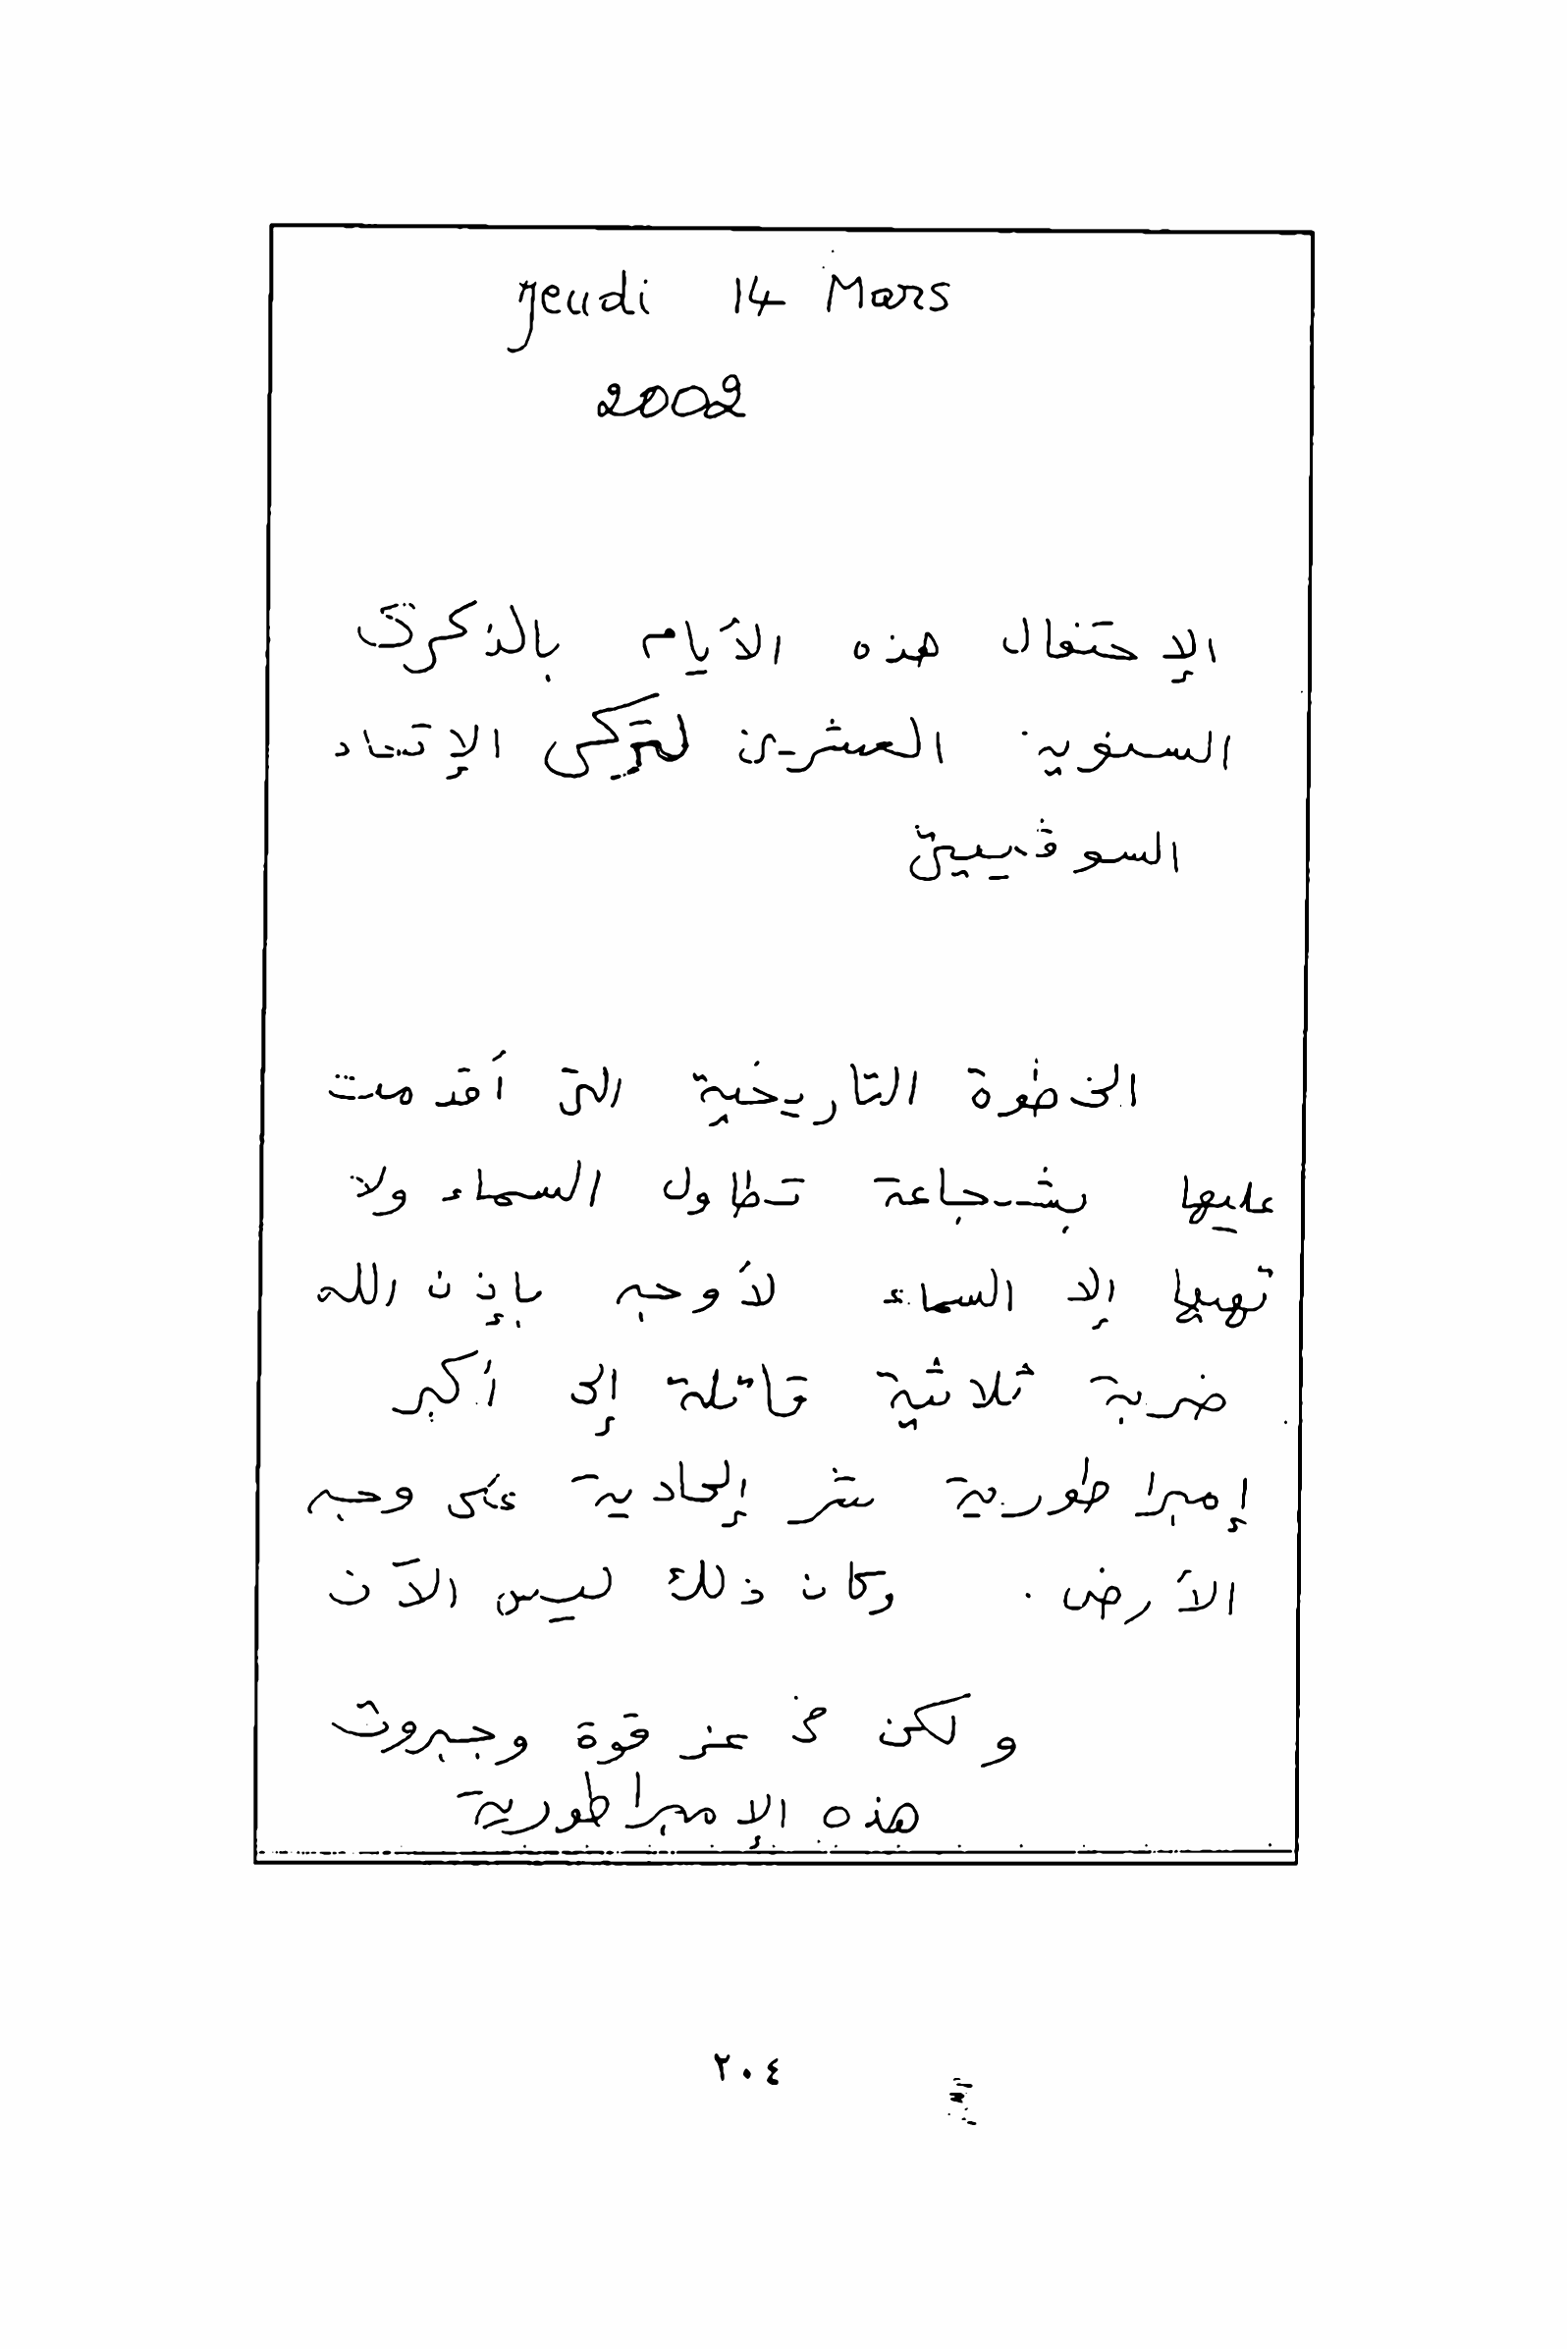 Jeudi 14 Mars
2002
الإحتفال هذه الأيام بالذكرى
السنوية العشرين لتركي الإتحاد
السوڤييتي
الخطوة التاريخية التي أقدمت
عليها بشجاعة تطاول السماء ولا
تهيبها إلا السماء لأوجه بإذن الله
ضربة ثلاثية قاتلة إلى أكبر
إمبراطورية شر إلحادية على وجه
الأرض . وكان ذلك ليس الآن
ولكن في عز قوة وجبروت
هذه الإمبراطورية
٢٠٤